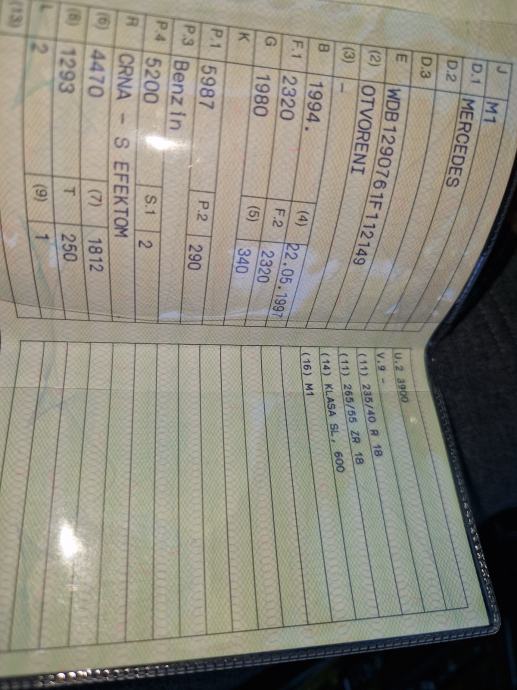 J M1
D.1 MERCEDES
D.2
D.3
E WDB1290761F112149
(2) OTVORENI
(3) -
B 1994. (4) 22.05.1997
F.1 2320 F.2 2320
G 1980 (5) 340
K
P.1 5987 P.2 290
P.3 Benzin
P.4 5200 S.1 2
R CRNA - S EFEKTOM
(6) 4470 (7) 1812
(8) 1293 T 250
L 2 (9) 1
(13)
U.2 3900
V.9 -
(11) 235/40 R 18
(11) 265/55 ZR 18
(14) KLASA SL, 600
(16) M1